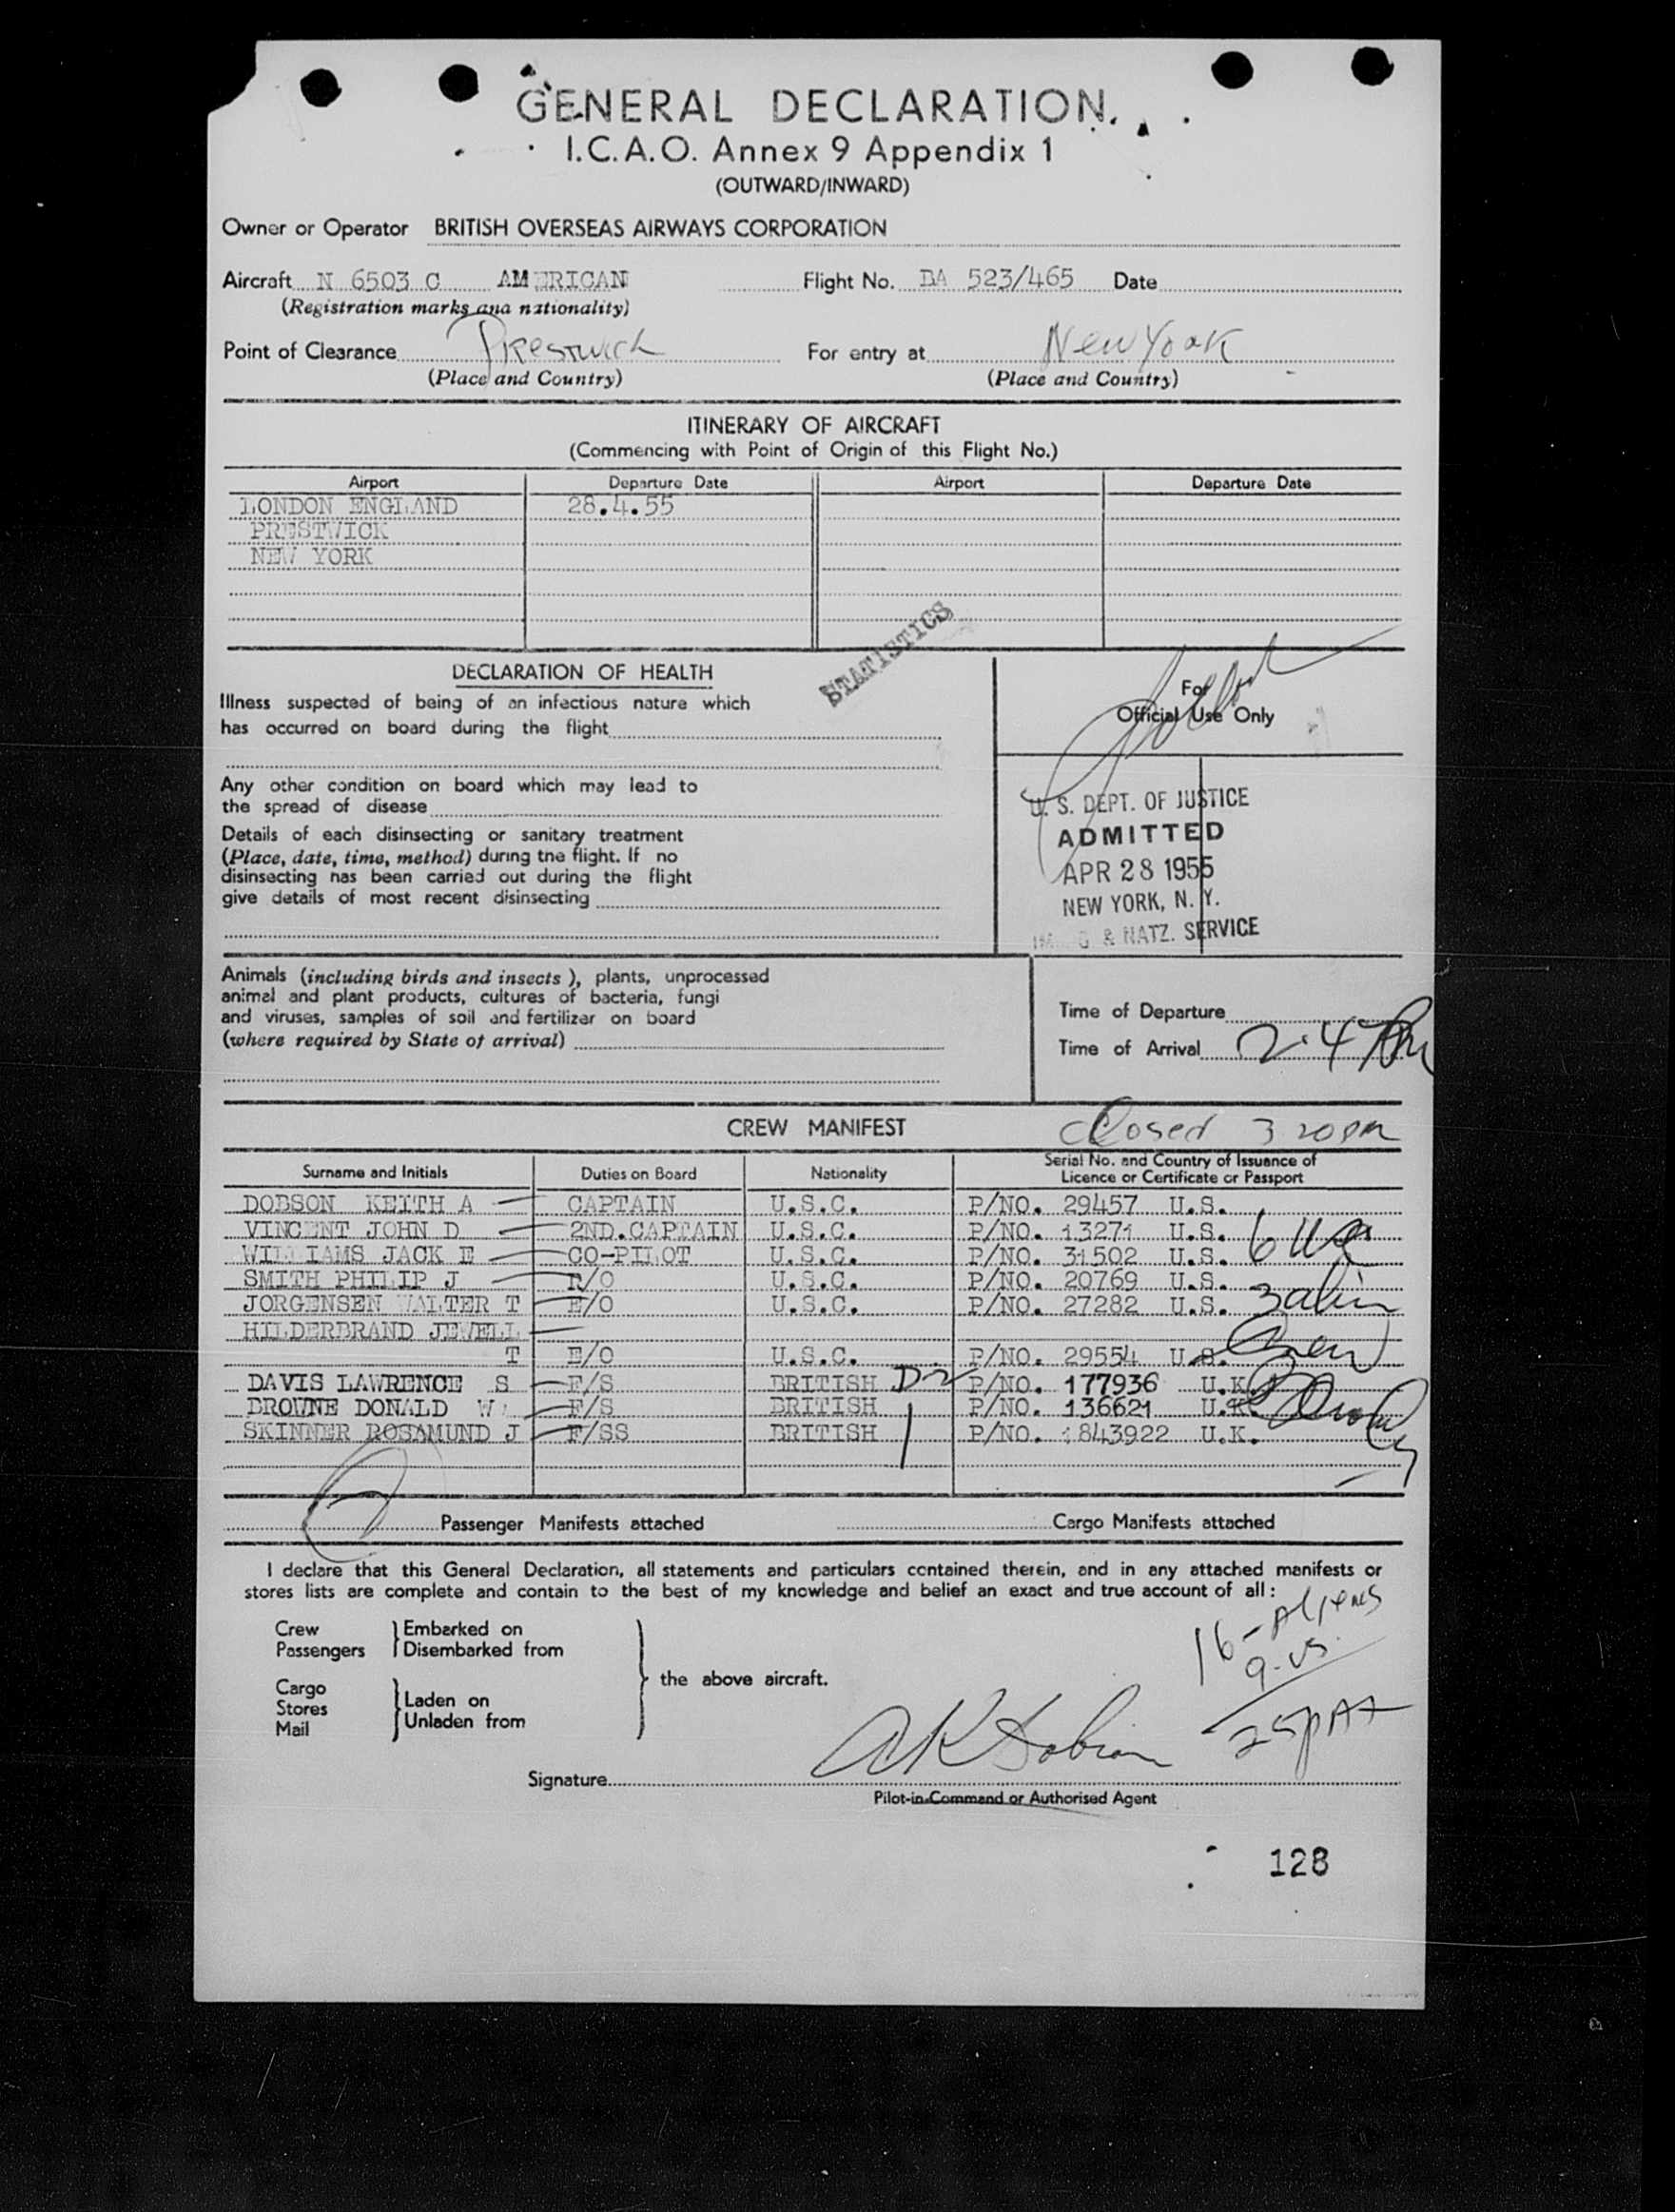 GENERAL DECLARATION
I.C.A.O. Annex 9 Appendix 1
(OUTWARD/INWARD)
Owner or Operator BRITISH OVERSEAS AIRWAYS CORPORATION
Aircraft N 6503 C AMERICAN Flight No. BA 523/465 Date
(Registration marks and nationality)
Point of Clearance Prestwick For entry at New York
(Place and Country) (Place and Country)
ITINERARY OF AIRCRAFT
(Commencing with Point of Origin of this Flight No.)
Airport Departure Date Airport Departure Date
LONDON ENGLAND 28.4.55
PRESTWICK
NEW YORK
STATISTICS
DECLARATION OF HEALTH
Illness suspected of being of an infectious nature which
has occurred on board during the flight
Any other condition on board which may lead to
the spread of disease
Details of each disinsecting or sanitary treatment
(Place, date, time, method) during the flight. If no
disinsecting has been carried out during the flight
give details of most recent disinsecting
For
Official Use Only
U. S. DEPT. OF JUSTICE
ADMITTED
APR 28 1955
NEW YORK, N. Y.
& NATZ. SERVICE
Animals (including birds and insects), plants, unprocessed
animal and plant products, cultures of bacteria, fungi
and viruses, samples of soil and fertilizer on board
(where required by State of arrival)
Time of Departure
Time of Arrival
CREW MANIFEST Closed 3 20 pm
Surname and Initials Duties on Board Nationality Serial No. and Country of Issuance of
Licence or Certificate or Passport
DOBSON KEITH A CAPTAIN U.S.C. P/NO. 29457 U.S.
VINCENT JOHN D 2ND.CAPTAIN U.S.C. P/NO. 13271 U.S.
WILLIAMS JACK E CO-PILOT U.S.C. P/NO. 31502 U.S.
SMITH PHILIP J N/O U.S.C. P/NO. 20769 U.S.
JORGENSEN WALTER T E/O U.S.C. P/NO. 27282 U.S. 3 alien
HILDERBRAND JEWELL
T E/O U.S.C. P/NO. 29554 U.S. Crew
DAVIS LAWRENCE S F/S BRITISH D2 P/NO. 177936 U.K.
BROWNE DONALD W F/S BRITISH P/NO. 136621 U.K.
SKINNER ROSAMUND J F/SS BRITISH P/NO. 1843922 U.K.
Passenger Manifests attached Cargo Manifests attached
I declare that this General Declaration, all statements and particulars contained therein, and in any attached manifests or
stores lists are complete and contain to the best of my knowledge and belief an exact and true account of all:
16-Aliens
9-US
25 PAX
Crew Embarked on
Passengers Disembarked from
the above aircraft.
Cargo
Stores Laden on
Mail Unladen from
Signature
Pilot-in-Command or Authorised Agent
128